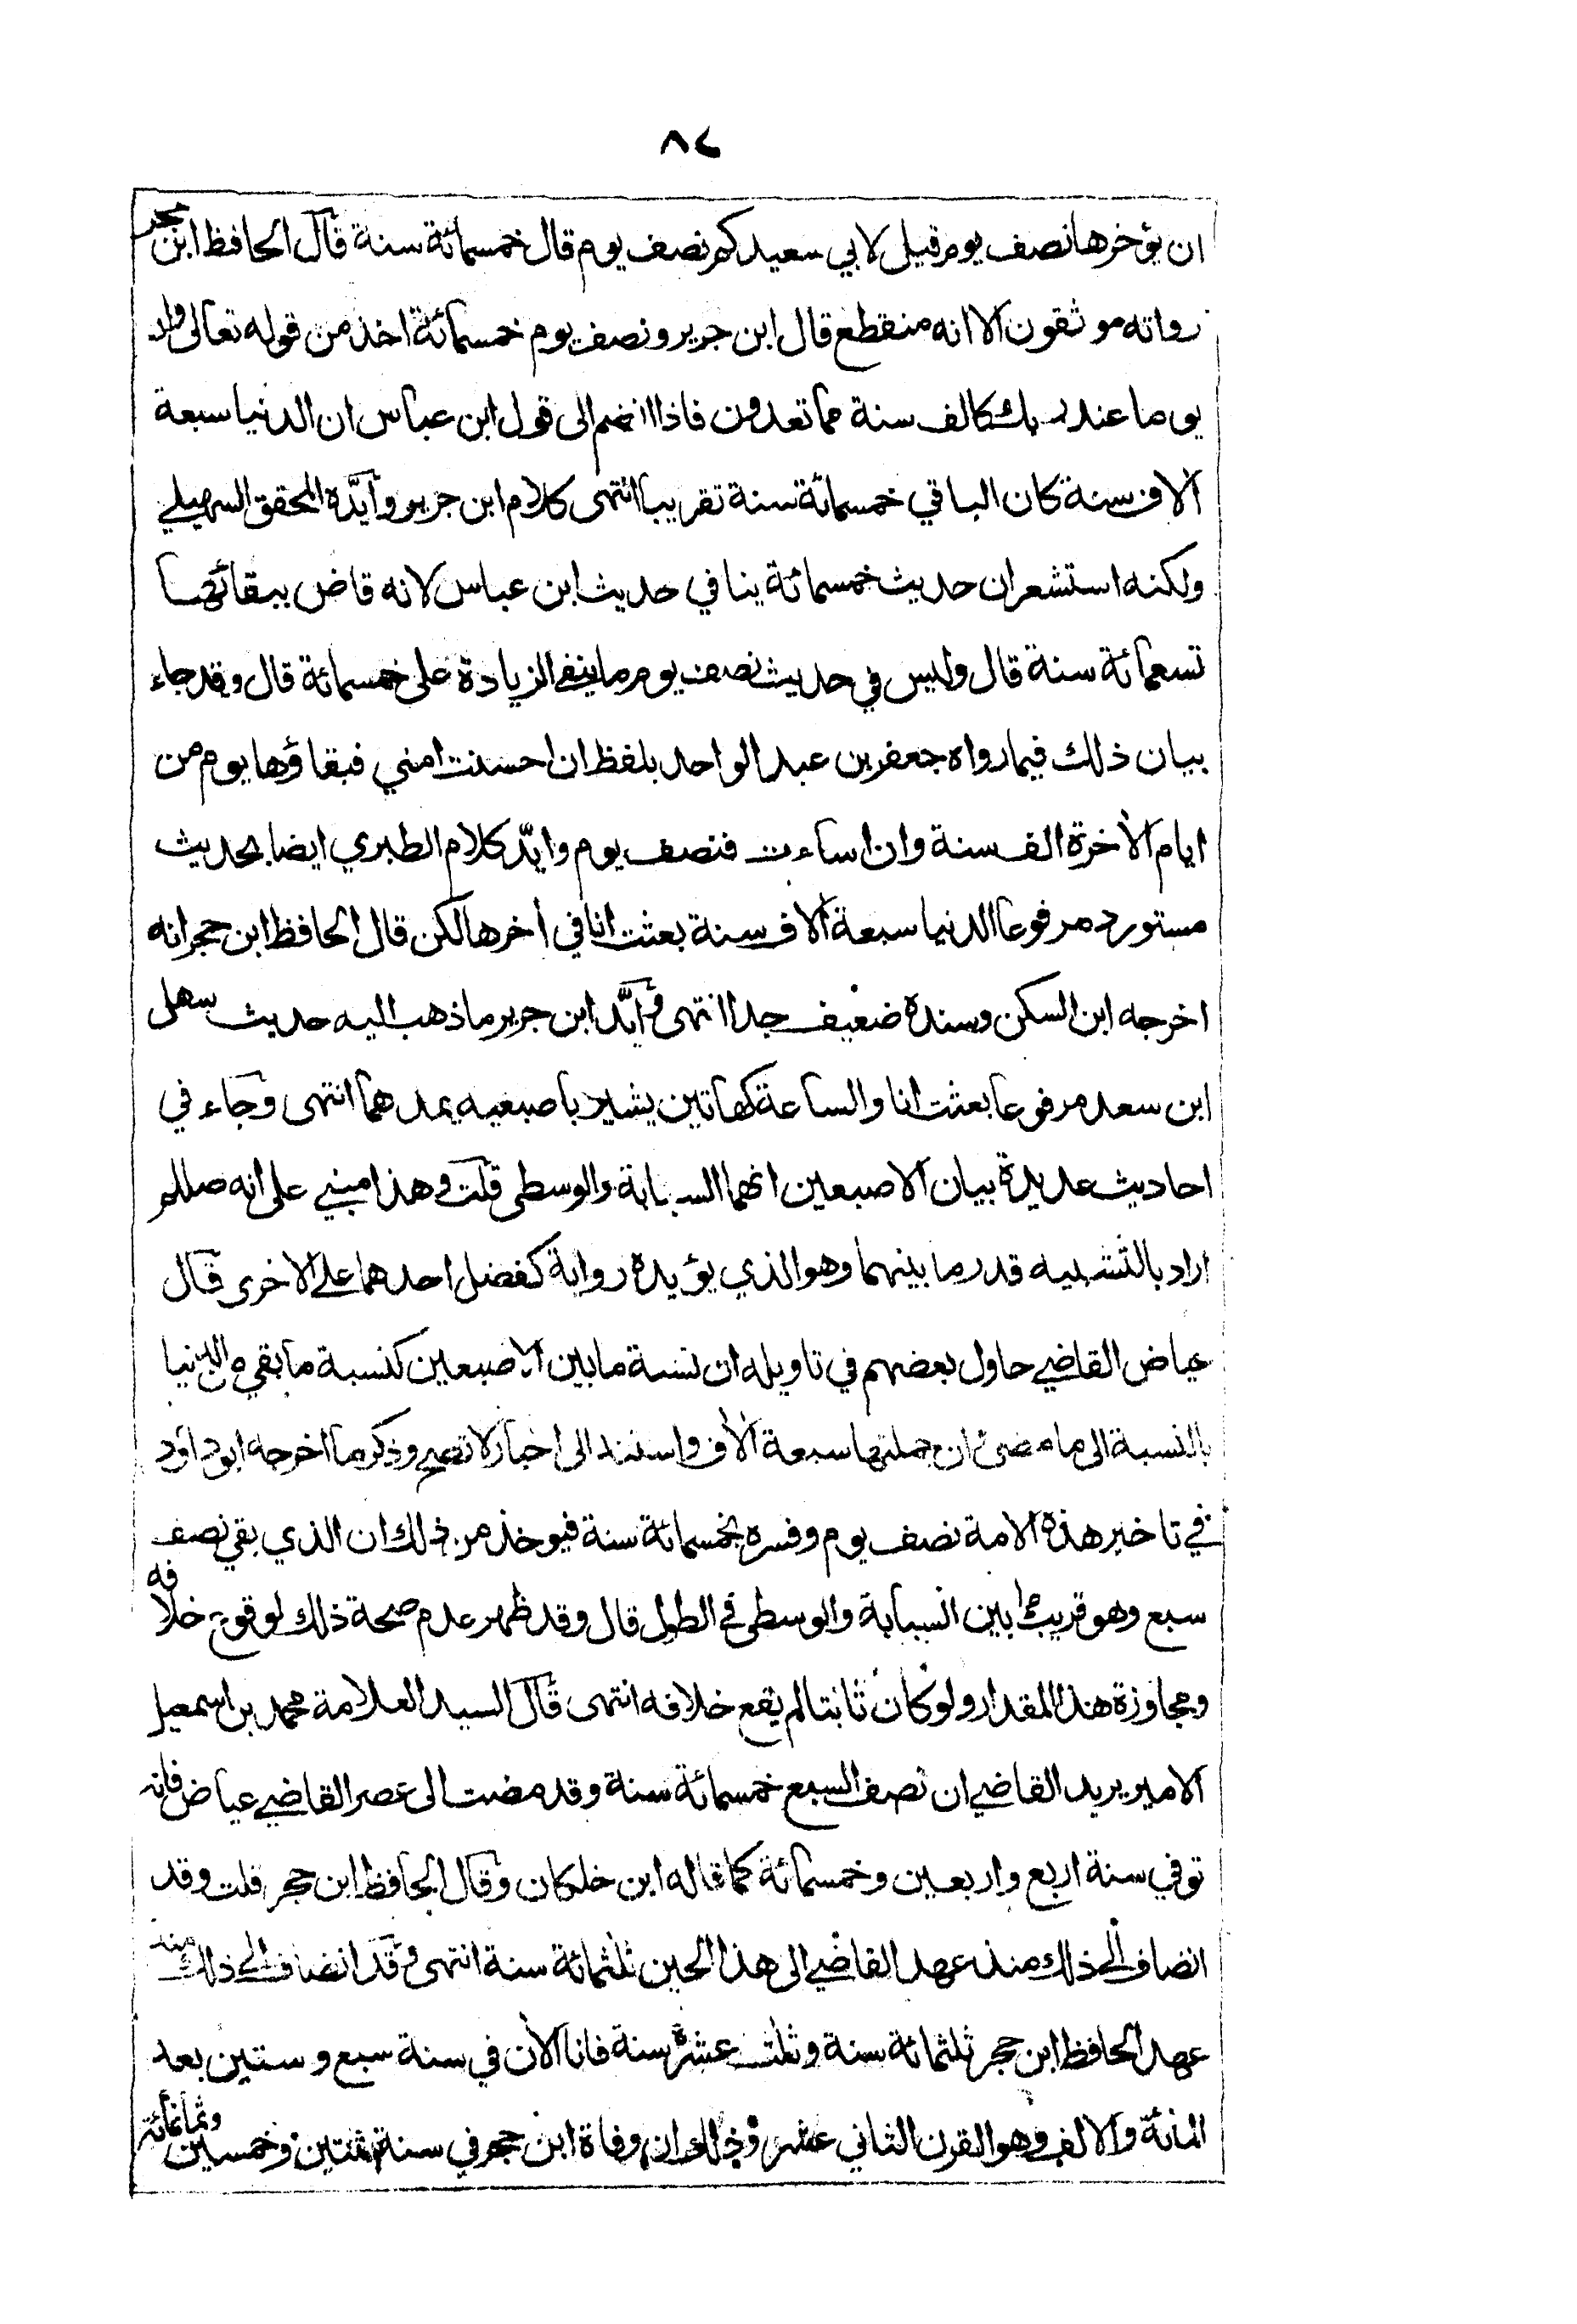 ٨٢
ان يؤخرها نصف يوم قيل لابي سعيد كم نصف يوم قال خمسمائة سنة قال الحافظ ابن حجر
رواته موثقون الا انه منقطع قال ابن جرير ونصف يوم خمسمائة اخذ من قوله تعالى وان
يوما عند ربك كالف سنة مما تعدون فاذا انضم الى قول ابن عباس ان الدنيا سبعة
آلاف سنة كان الباقي خمسمائة سنة تقريبا انتهى كلام ابن جرير وأيّده المحقق السهيلي
ولكنه استشعر ان حديث خمسمائة ينافي حديث ابن عباس لانه قاض ببقائها
تسعمائة سنة قال وليس في حديث نصف يوم ما ينفي الزيادة على خمسمائة قال وقد جاء
بيان ذلك فيما رواه جعفر بن عبد الواحد بلفظ ان احسنت امتي فبقاؤها يوم من
ايام الآخرة الف سنة وان اساءت فنصف يوم وايّد كلام الطبري ايضا بحديث
مستورد مرفوعا الدنيا سبعة آلاف سنة بعثت انا في أخرها لكن قال الحافظ ابن حجر انه
اخرجه ابن السكن وسنده ضعيف جدا انتهى وأيّد ابن جرير ما ذهب اليه حديث سهل
ابن سعد مرفوعا بعثت انا والساعة كهاتين يشير باصبعيه يمدهما انتهى وجاء في
احاديث عديدة بيان الاصبعين انهما السبابة والوسطى قلت وهذا مبني على انه صللم
اراد بالتشبيه قدر ما بينهما وهو الذي يؤيده رواية كفضل احدهما على الاخرى قال
عياض القاضي حاول بعضهم في تاويله ان نسبة ما بين الاصبعين كنسبة ما بقي من الدنيا
بالنسبة الى ما مضى وان جملتها سبعة آلاف واستند الى اخبار لا تصح وذكر ما اخرجه ابو داؤد
في تاخير هذه الامة نصف يوم وفسره بخمسمائة سنة فيوخذ من ذلك ان الذي بقي نصف
سبع وهو قريب مما بين السبابة والوسطى في الطول قال وقد ظهر عدم صحة ذلك لوقوع خلافه
ومجاوزة هذا المقدار ولو كان ثابتا لم يقع خلافه انتهى قال السيد العلامة محمد بن اسمعيل
الامير يريد القاضي ان نصف السبع خمسمائة سنة وقد مضت الى عصر القاضي عياض فانه
توفي سنة اربع واربعين وخمسمائة كما قاله ابن خلكان وقال الحافظ ابن حجر قلت وقد
انضاف الى ذلك منذ عهد القاضي الى هذا الحين ثلثمائة سنة انتهى وقد انضاف الى ذلك منذ
عهد الحافظ ابن حجر ثلثمائة سنة وثلث عشرة سنة فانا الآن في سنة سبع وستين بعد
المائة والالف وهو القرن الثاني عشر وذلك ان وفاة ابن حجر في سنة ثنتين وخمسين وثمانمائة